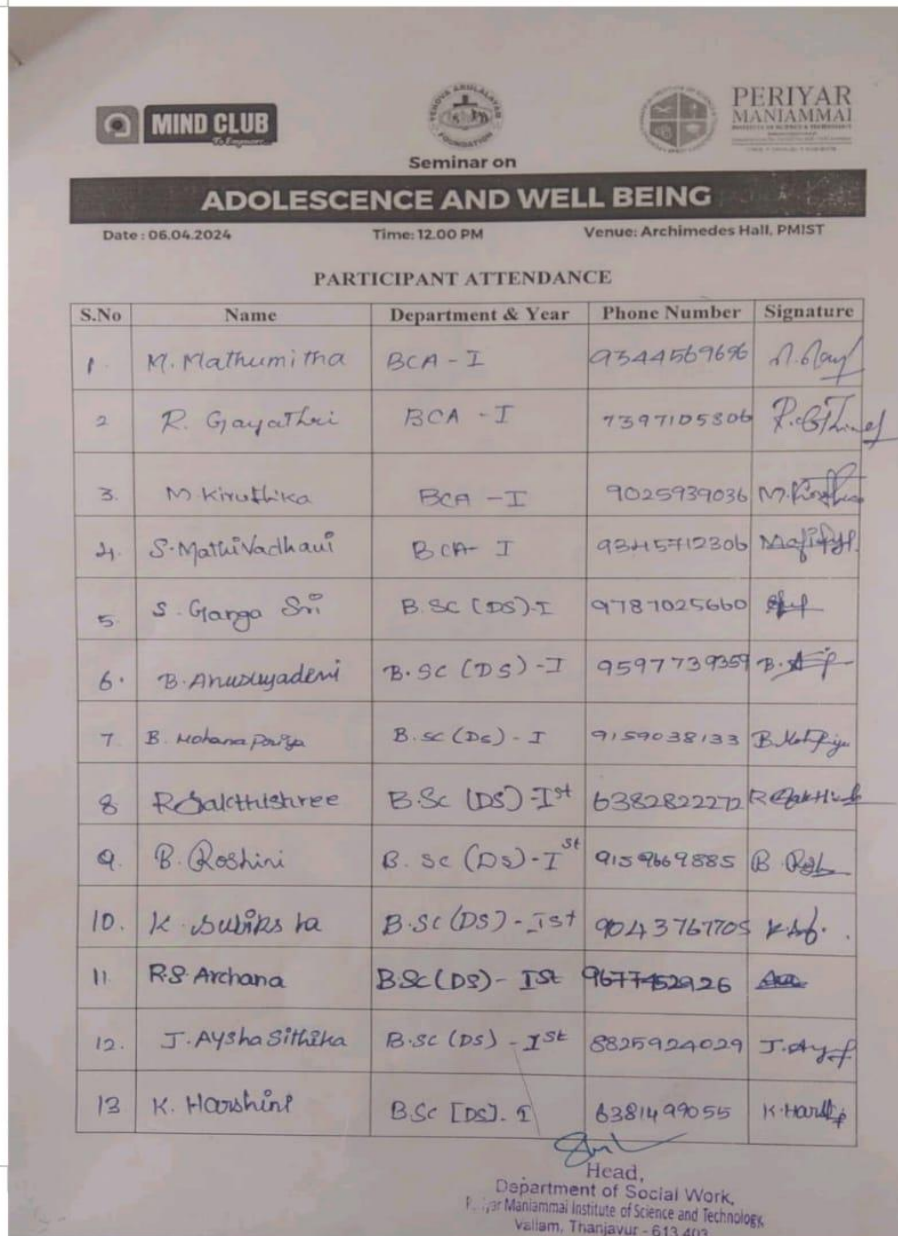 MIND CLUB
To Engineer...
YEHOVA ARULALAYAM
FOUNDATION
PERIYAR
MANIAMMAI
INSTITUTE OF SCIENCE & TECHNOLOGY
Seminar on
ADOLESCENCE AND WELL BEING
Date : 06.04.2024 Time: 12.00 PM Venue: Archimedes Hall, PMIST
PARTICIPANT ATTENDANCE
S.No Name Department & Year Phone Number Signature
1. M. Mathumitha BCA - I 9344569696
2 R. Gayathri BCA - I 7397105306
3. M. Kiruthika BCA - I 9025939036
4. S. Mathivadhani BCA- I 9345712306
5. S. Ganga Sri B.SC (DS)-I 9787025660
6. B. Anusuyadevi B.SC (DS) -I 9597739359
7 B. Mohanapriya B.sc (Ds) - I 9159038133
8 R Sakthishree B.Sc (DS)-Ist 6382822272
9. B. Roshini B. Sc (Ds)-Ist 9159669885
10. K. Subiksha B.Sc (DS) - Ist 9043767705
11 R.S. Archana B.Sc (DS)- ISt 9677452926
12. J. Aysha Sithika B.sc (DS) - ISt 8825924029
13 K. Harshini B.Sc [DS]. I 6381499055
Head,
Department of Social Work,
Periyar Maniammai Institute of Science and Technology,
Vallam, Thanjavur - 613 403